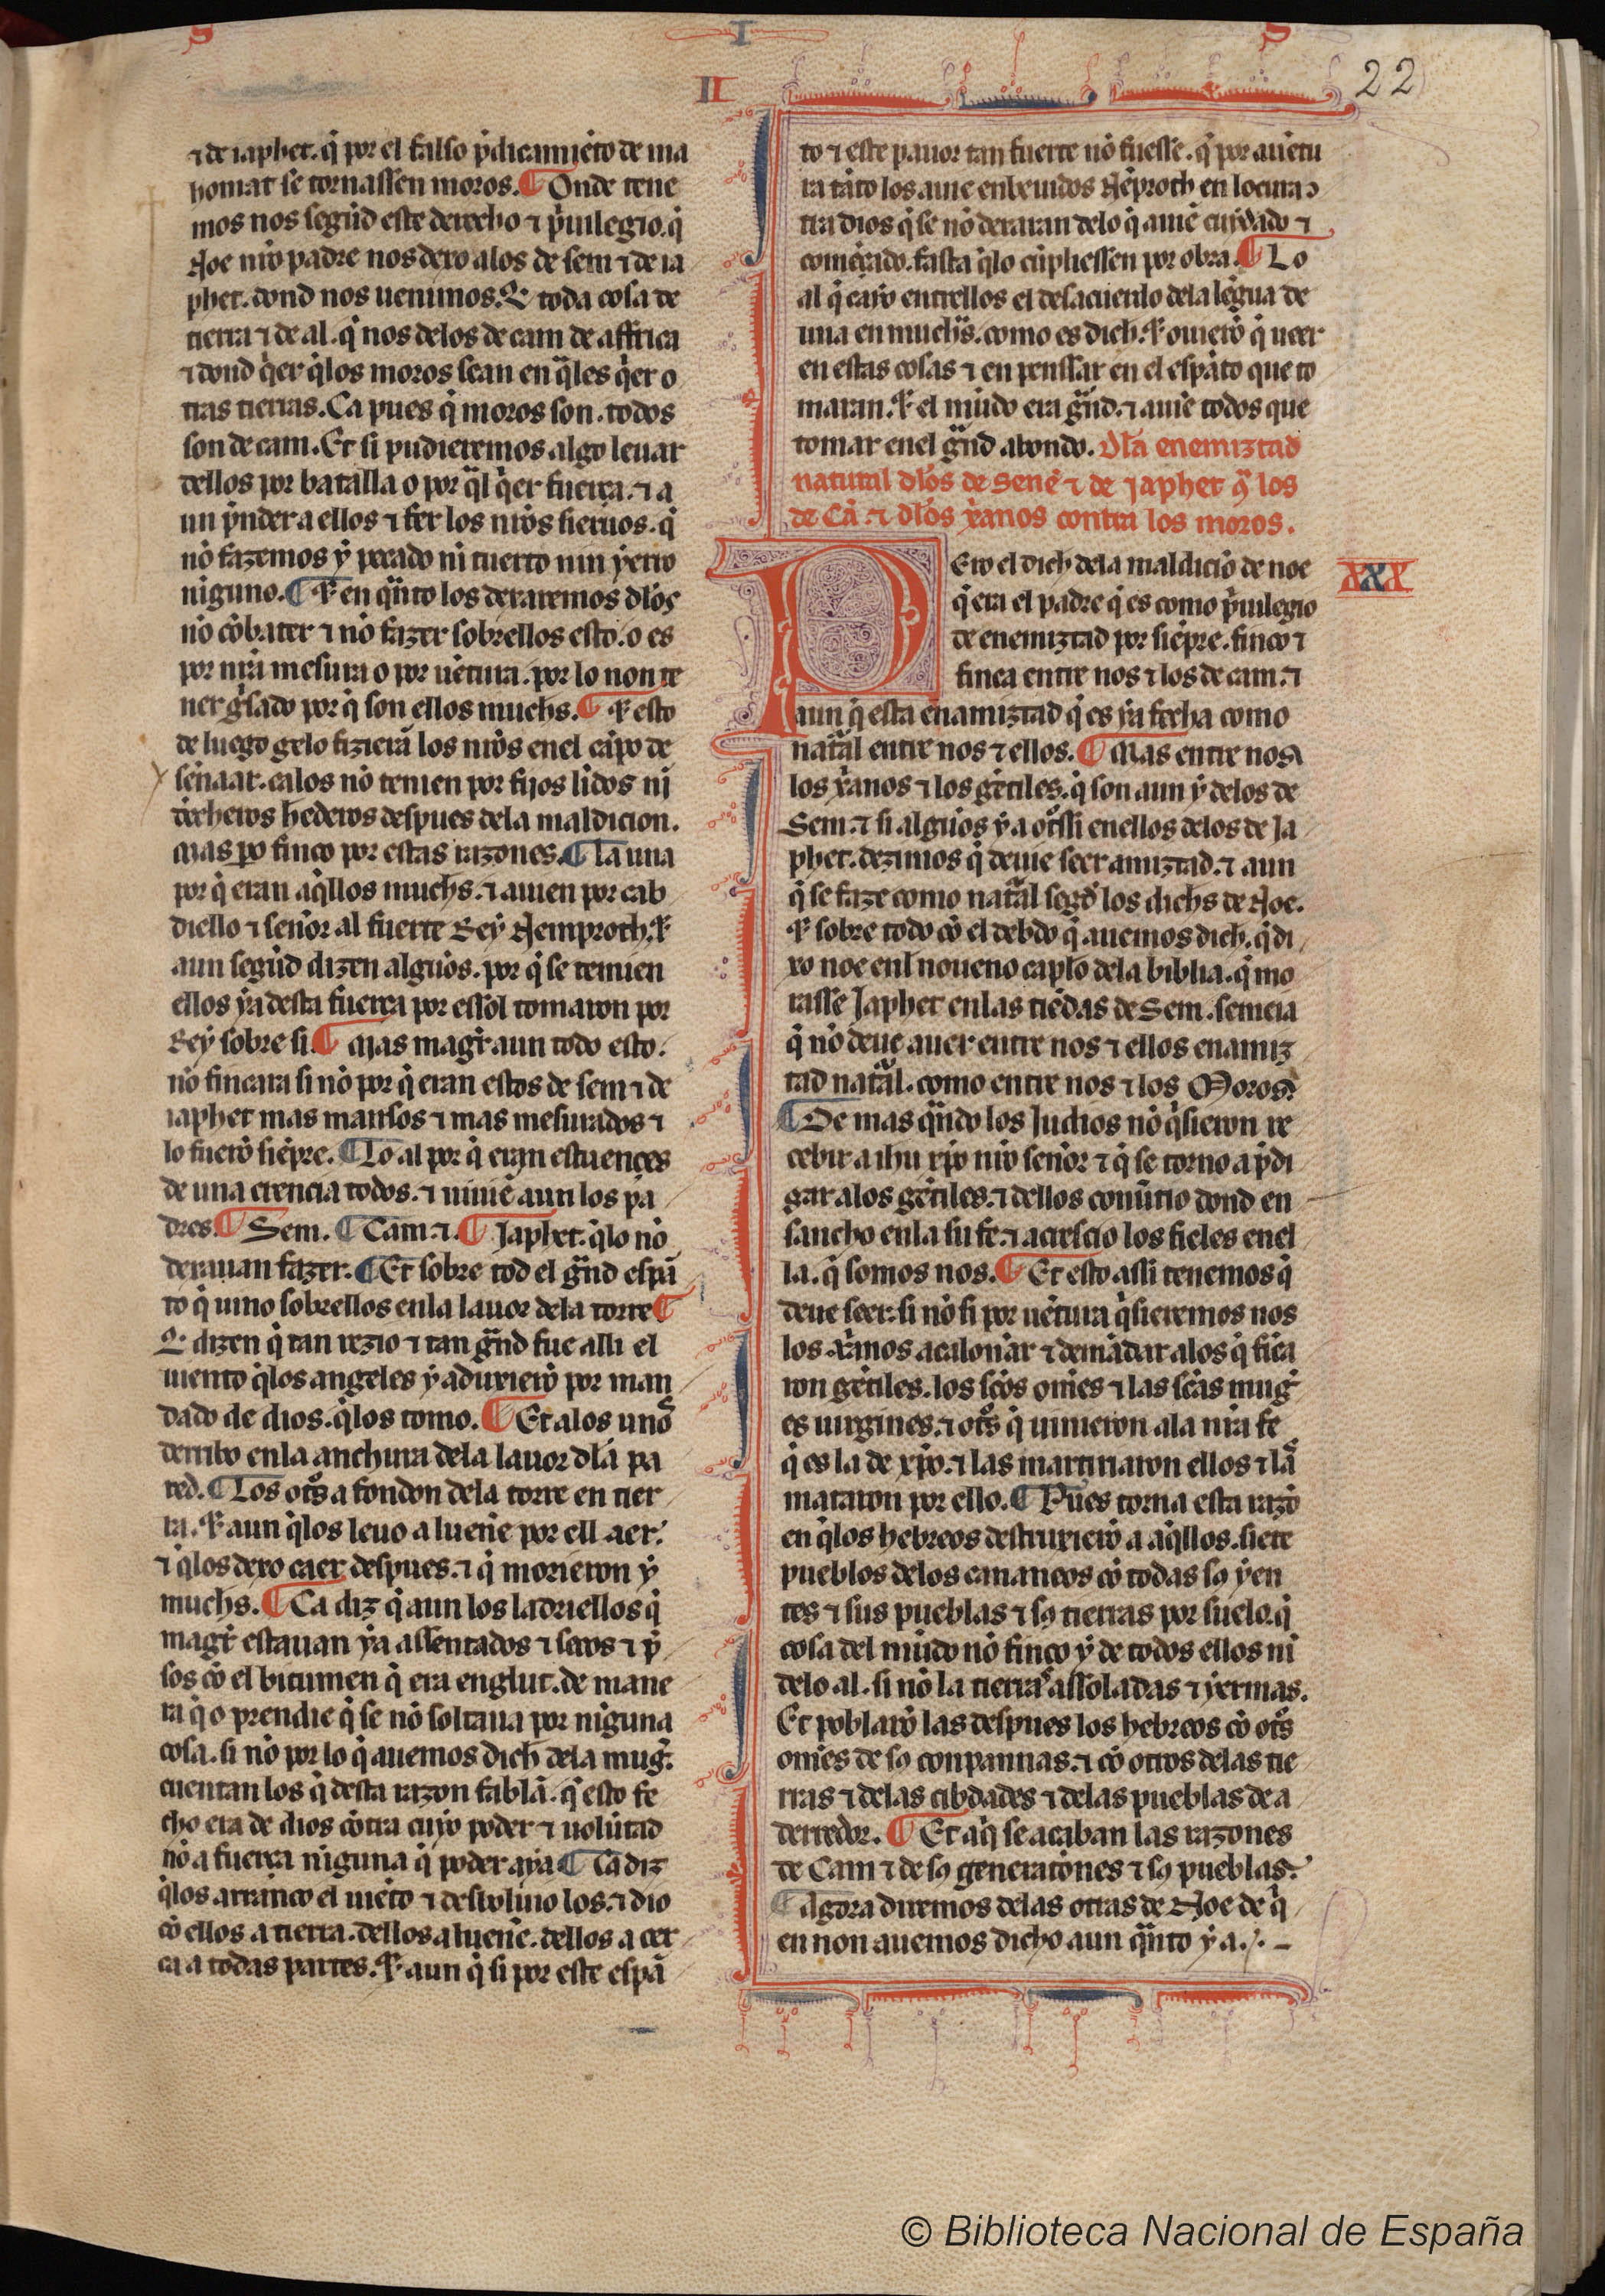 I
II
22
⁊ de iaphet. q̇ por el falso p̃dicamiẽto de ma
homat se tornassen moros. ¶ Onde tene
mos nos segũd este derecho ⁊ p̃uilegio. q̇
Noe nr̃o padre nos dexo alos de sem ⁊ de ia
phet. dond nos uenimos. Et toda cosa de
tierra ⁊ de al. q̇ nos delos de cam de affrica
⁊ dond q̇er q̇los moros sean en q̃les q̇er o
tras tierras. Ca pues q̇ moros son. todos
son de cam. Et si pudieremos algo leuar
dellos por batalla o por q̃l q̇er fuerça. ⁊ a
un p̃nder a ellos ⁊ fer los nr̃os sieruos. q̇
nõ fazemos ẏ pecado ni tuerto nin yerro
niguno. ¶ Et en q̃nto los dexaremos dlõs
nõ cõbater ⁊ nõ fazer sobrellos esto. o es
por nr̃a mesura o por uẽtura. por lo non te
ner g̃sado por q̇ son ellos muchs. ¶ Et esto
de luego gelo fizierã los nr̃os enel cãpo de
senaar. ca los nõ tenien por fijos lidos ni
derecheros hederos despues dela maldicion.
Mas po finco por estas razones. ¶ La una
por q̇ eran aq̃llos muchs. ⁊ auien por cab
diello ⁊ señor al fuerte Rey Nemproth. Et
aun segũd dizen algũos. por q̇ se temien
ellos ya desta fuerça por essol tomaron por
Rey sobre si. ¶ Mas mag̃r aun todo esto.
nõ fincara si nõ por q̇ eran estos de sem ⁊ de
iaphet mas mansos ⁊ mas mesurados ⁊
lo fuerõ siẽpre. ¶ Lo al por q̇ eran estuences
de una creencia todos. ⁊ uiuiẽ aun los pa
dres. ¶ Sem. ¶ Cam. ⁊. ¶ Japhet. q̇lo nõ
dexauan fazer. ¶ Et sobre tod el g̃nd espã
to q̇ uino sobrellos enla lauor dela torre ¶
Et dizen q̇ tan rezio ⁊ tan g̃nd fue alli el
uiento q̇los angeles ẏ aduxierõ por man
dado de dios. q̇los tomo. ¶ Et alos unos
derribo enla anchura dela lauor dla pa
red. ¶ Los ot̃s a fondon dela torre en tier
ra. Et aun q̇los leuo a lueñe por ell aer.
⁊ q̇los dexo caer despues. ⁊ q̇ morieron ẏ
muchs. ¶ Ca diz q̇ aun los ladriellos q̇
mag̃r estauan ya assentados ⁊ secos ⁊ p̃
sos cõ el bitumen q̇ era englut. de mane
ra q̇ o prendie q̇ se nõ soltaua por niguna
cosa. si nõ por lo q̇ auemos dich dela mug̃.
cuentan los q̇ desta razon fablã. q̇ esto fe
cho era de dios cõtra cuyo poder ⁊ uolũtad
nõ a fuerça niguna q̇ poder aya ¶ Ca diz
q̇los arranco el uiẽto ⁊ desboluio los. ⁊ dio
cõ ellos a tierra. dellos a lueñe. dellos a cer
ca a todas partes. Et aun q̇ si por este espã
to ⁊ este pauor tan fuerte nõ fuesse. q̇ por auẽtu
ra tãto los auie enbeuidos Nẽproth en locura ↄ
tra dios q̇ se nõ dexaran delo q̇ auiẽ cuydado ⁊
comẽçado. fasta q̇lo cũpliessen por obra. ¶ Lo
al q̇ cayo entrellos el desacuerdo dela lẽgua de
una en muchas. como es dich. Et ouierõ q̇ ueer
en estas cosas ⁊ en penssar en el espãto que to
maran. Et el mũdo era g̃nd. ⁊ auiẽ todos que
tomar enel g̃nd abondo. Dla enemiztad
natural dlos de Sene ⁊ de Japhet ↄ̃ los
de Cã. ⁊ dlos xp̃anos contra los moros.
XXX
Pero el dich dela maldiciõ de noe
q̇ era el padre q̇ es como p̃uilegio
de enemiztad por siẽpre. finco ⁊
finca entre nos ⁊ los de cam. ⁊
aun q̇ esta enamiztad q̇ es ya fecha como
nat̃al entre nos ⁊ ellos. ¶ Mas entre nos
los xp̃anos ⁊ los gẽtiles. q̇ son aun ẏ delos de
Sem. ⁊ si algũos ya otrossi enellos delos de Ja
phet. dezimos q̇ deuie seer amiztad. ⁊ aun
q̇ se faze como nat̃al segd̃ los dichs de Noe.
Et sobre todo cõ el debdo q̇ auemos dich. q̇ di
xo noe enl noueno capl̃o dela biblia. q̇ mo
rasse Japhet enlas tiẽdas de Sem. semeia
q̇ nõ deue auer entre nos ⁊ ellos enamiz
tad nat̃al. como entre nos ⁊ los Moros.
¶ De mas q̃ndo los Judios nõ q̇sieron re
cebir a ihu xp̃o nr̃o señor ⁊ q̇ se torno a p̃di
gar alos gẽtiles. ⁊ dellos conũtio dond en
sancho enla su fe. ⁊ acrescio los fieles enel
la. q̇ somos nos. ¶ Et esto assi tenemos q̇
deue seer. si nõ si por uẽtura q̇sieremos nos
los xp̃anos acalonar ⁊ demãdar alos q̇ fica
ron gẽtiles. los sc̃os om̃es ⁊ las sc̃as mug̃
es uirgines. ⁊ ot̃s q̇ uinieron ala nr̃a fe
q̇ es la de xp̃o. ⁊ las martiriaron ellos ⁊ las
mataron por ello. ¶ Pues torna esta razõ
en q̇los hebreos destruxierõ a aq̃llos. siete
pueblos delos cananeos cõ todas sꝯ yen
tes ⁊ sus pueblas ⁊ sꝯ tierras por suelo. q̇
cosa del mũdo nõ finco ẏ de todos ellos ni
delo al. si nõ la tierras assoladas ⁊ yermas.
Et poblarõ las despues los hebreos cõ ot̃s
om̃es de sꝯ conpannas. ⁊ cõ otros delas tie
rras ⁊ delas cibdades ⁊ delas pueblas de a
derredor. ¶ Et aq̇ se acaban las razones
de Cam ⁊ de sꝯ generationes ⁊ sꝯ pueblas.
¶ Agora diremos delas otras de Noe de q̇
en non auemos dicho aun q̃nto ẏ a.
© Biblioteca Nacional de España